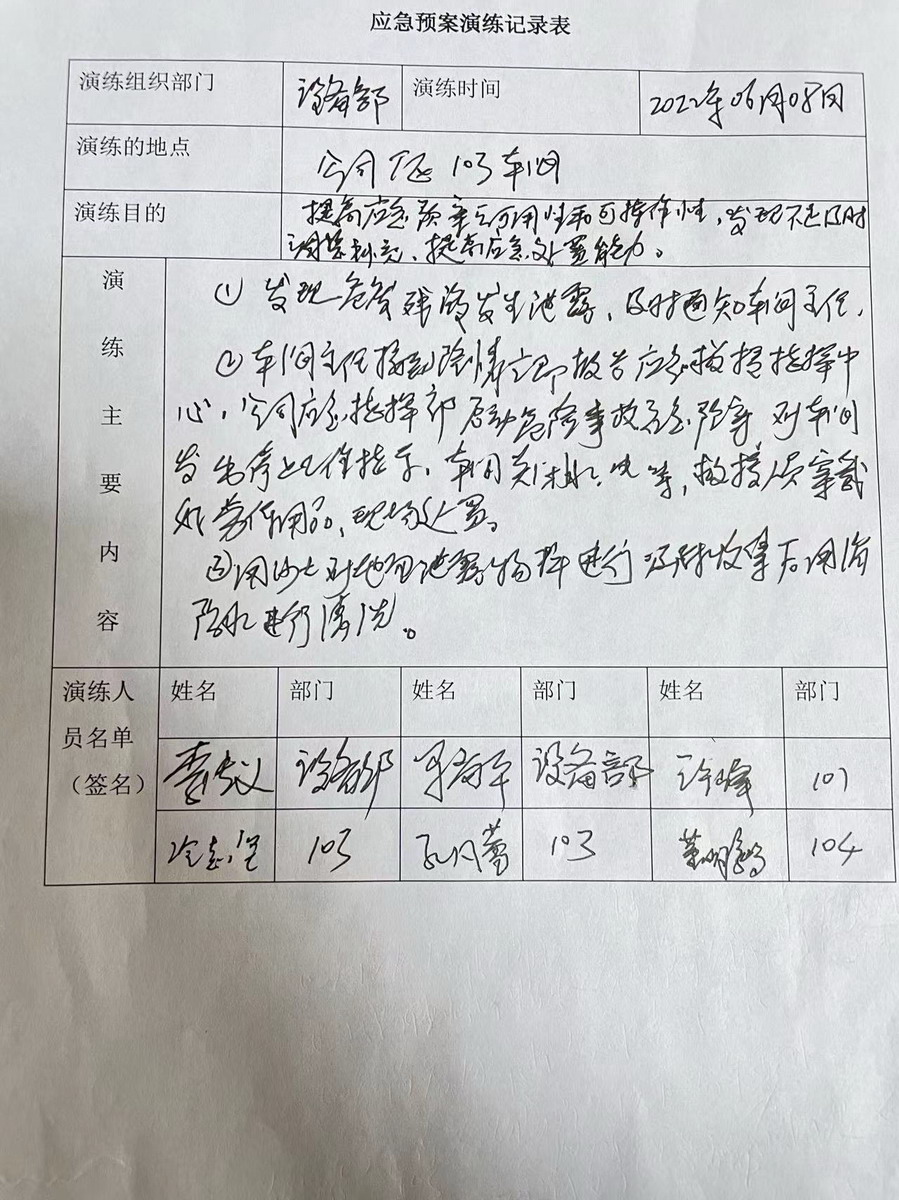 应急预案演练记录表
演练组织部门 设备部 演练时间 2022年06月08日
演练的地点 公司厂区103车间
演练目的 提高应急预案的可用性和可操作性，发现不足及时
调整补充、提高应急处置能力。
演练主要内容
① 发现危废残液发生泄露，及时通知车间主任，
② 车间主任接到险情立即报告应急救援指挥中
心，公司应急指挥部启动危险事故应急预案 对车间
发出停止工作指示，车间关闭水、电等，救援人员穿戴
好劳保用品，现场处置。
③用沙土对地面泄露物料进行及时收集后用消
防水进行清洗。
演练人员名单（签名） 姓名 部门 姓名 部门 姓名 部门
设备部 设备部 107
103 103 104